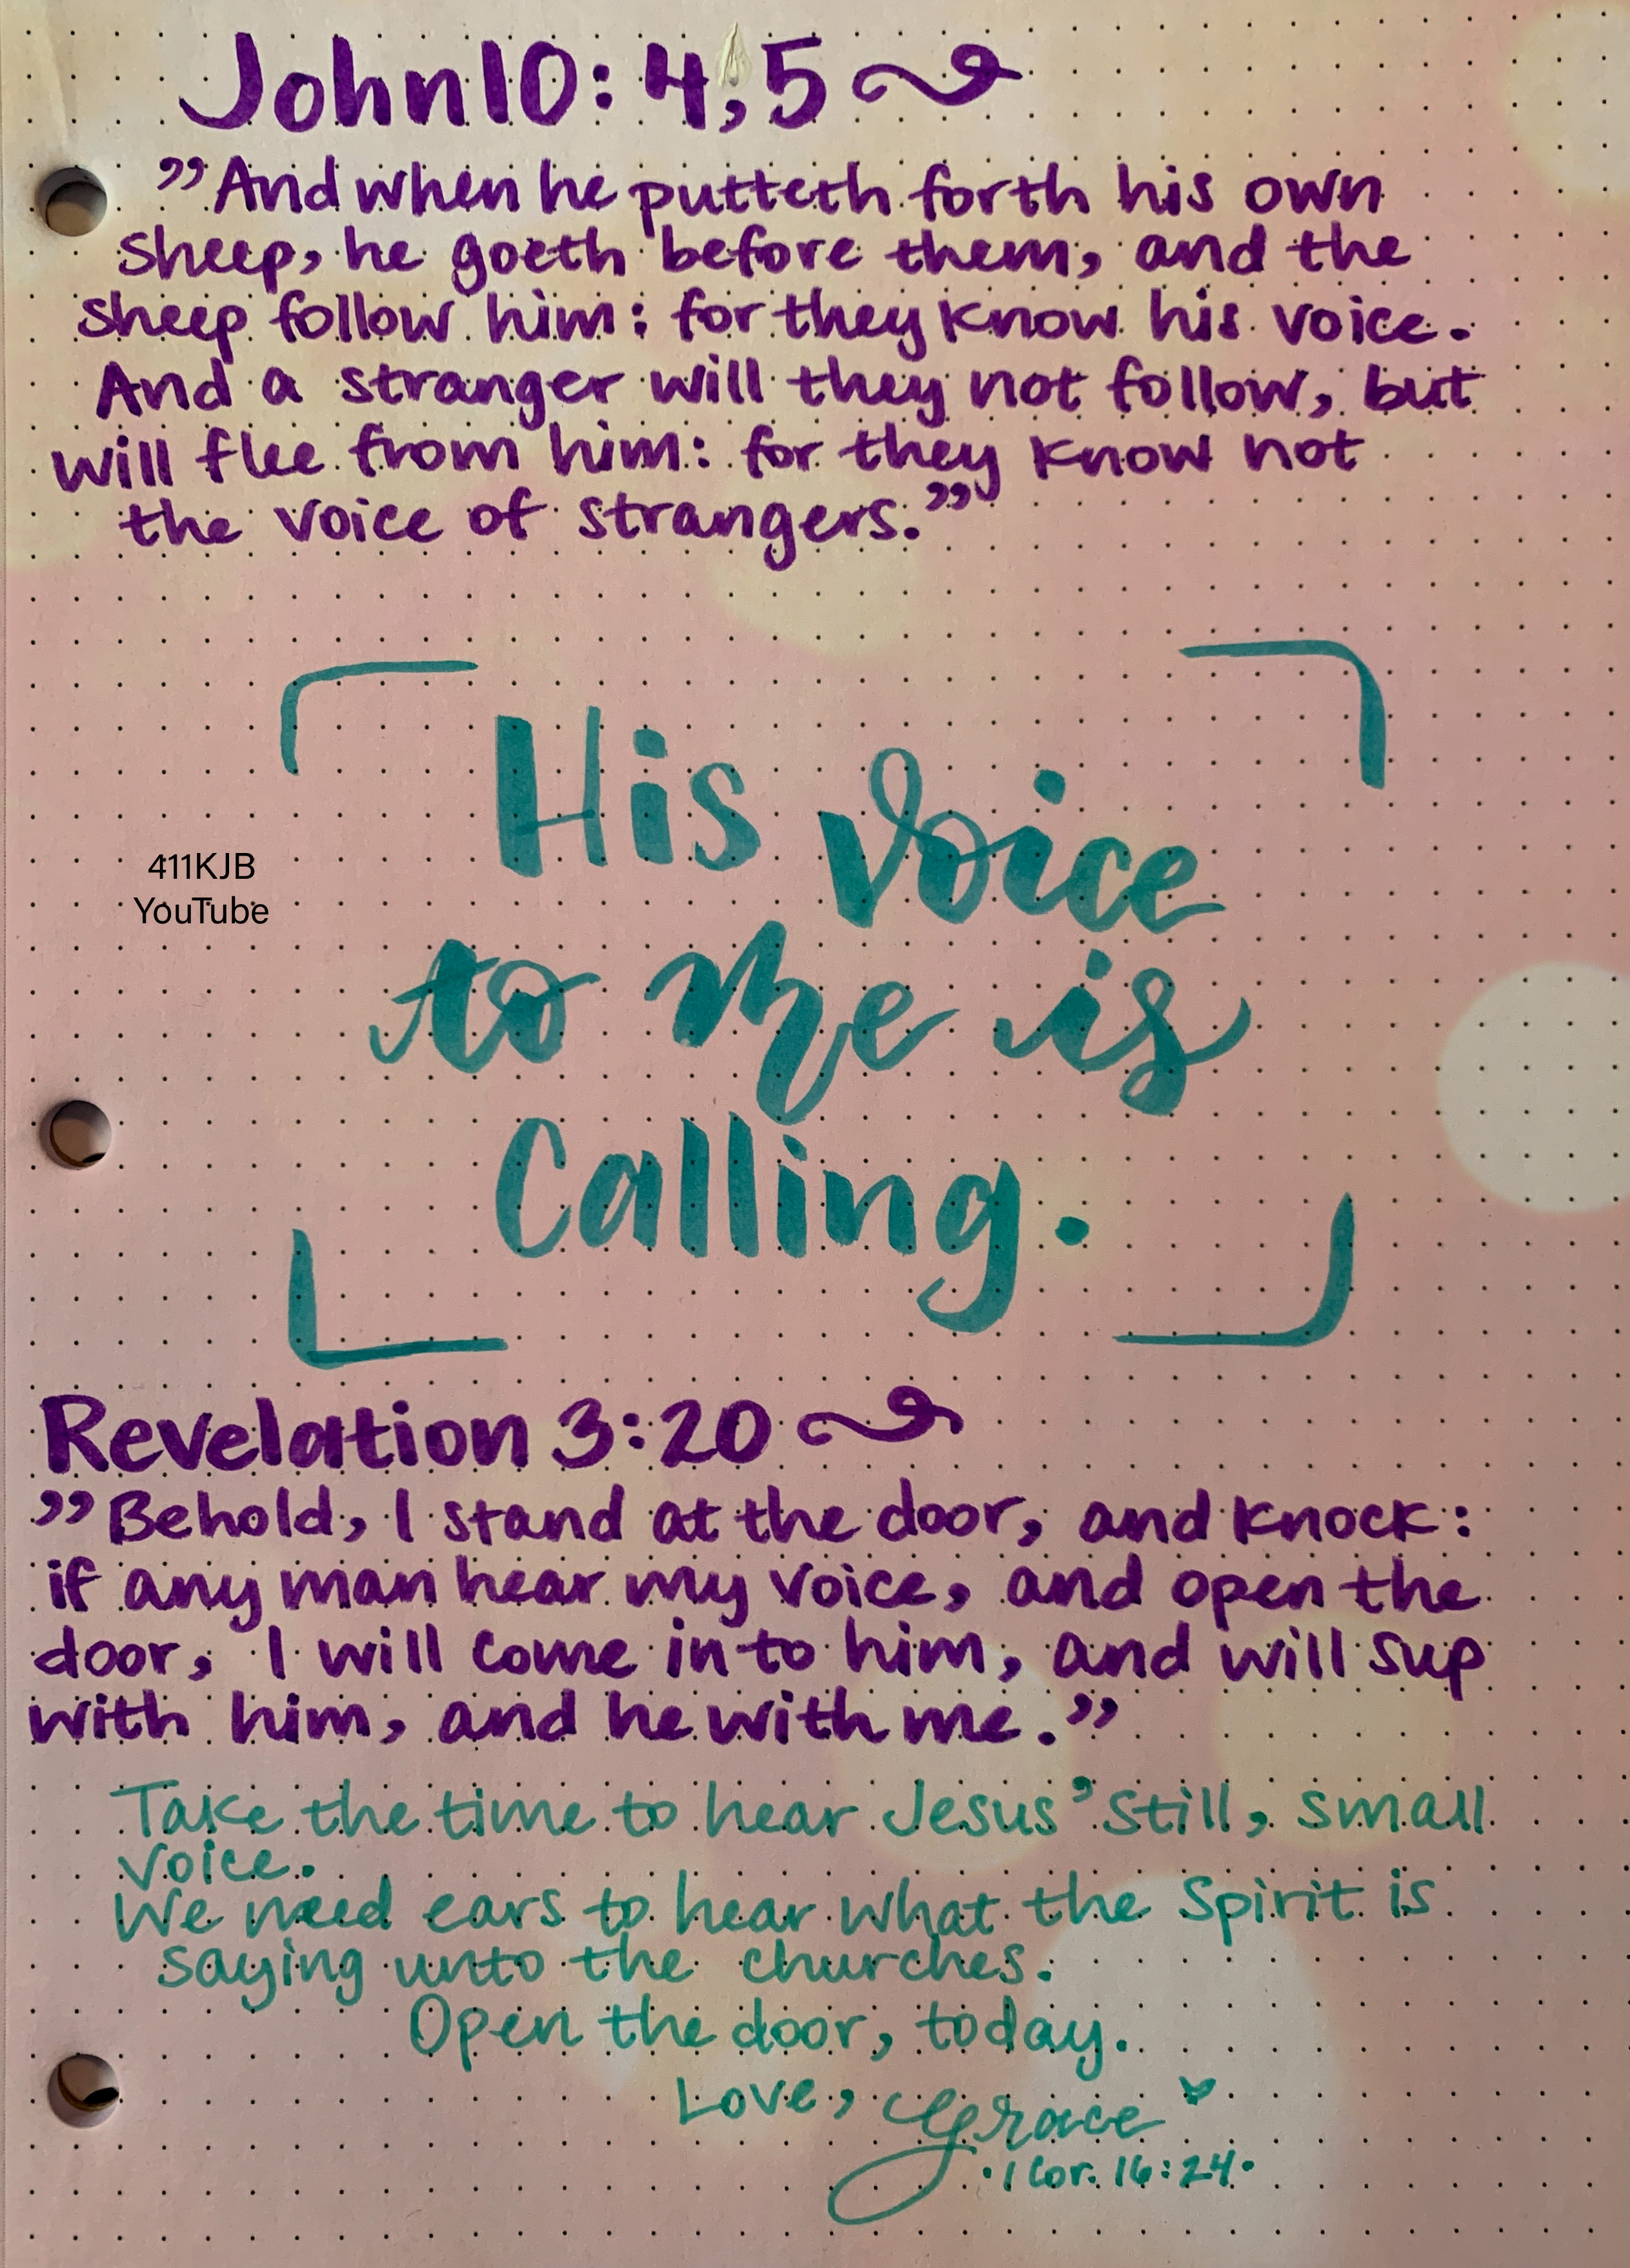 John 10: 4,5
"And when he putteth forth his own
sheep, he goeth before them, and the
sheep follow him: for they know his voice.
And a stranger will they not follow, but
will flee from him: for they know not
the voice of strangers."
His voice
to me is
Calling.
411KJB
YouTube
Revelation 3:20
"Behold, I stand at the door, and knock:
if any man hear my voice, and open the
door, I will come in to him, and will sup
with him, and he with me."
Take the time to hear Jesus' still, small
voice.
We need ears to hear what the Spirit is
saying unto the churches.
Open the door, today.
Love, Grace
•1 Cor. 16:24•